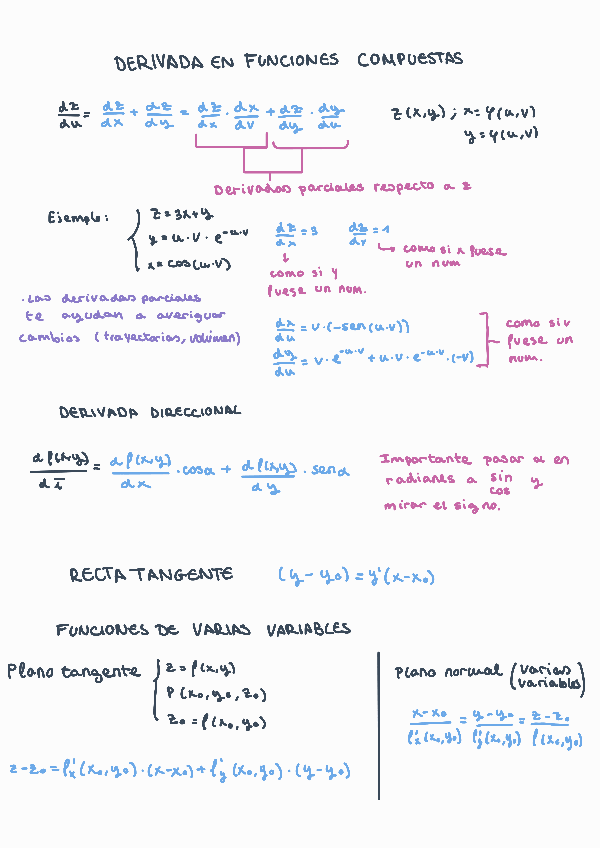 DERIVADA EN FUNCIONES COMPUESTAS
dz/du = dz/dx + dz/dy = dz/dx · dx/dv + dz/dy · dy/du
z(x,y) ; x = φ(u,v)
y = φ(u,v)
Derivadas parciales respecto a z
Ejemplo:
z = 3x+y
y = u·v·e^-u·v
x = cos(u·v)
dz/dx = 3
dz/dy = 1
como si y
fuese un num.
como si x fuese
un num
· Las derivadas parciales
te ayudan a averiguar
cambios (trayectorias, volumen)
dx/du = v·(-sen(u·v))
dy/du = v·e^-u·v + u·v·e^-u·v·(-v)
como si v
fuese un
num.
DERIVADA DIRECCIONAL
d f(x,y)/d i = d f(x,y)/dx · cosα + d f(x,y)/dy · senα
Importante pasar α en
radianes a sin/cos y
mirar el signo.
RECTA TANGENTE (y-y₀) = y'(x-x₀)
FUNCIONES DE VARIAS VARIABLES
Plano tangente
z = f(x,y)
P(x₀,y₀,z₀)
z₀ = f(x₀,y₀)
z-z₀ = f'x(x₀,y₀)·(x-x₀) + f'y(x₀,y₀)·(y-y₀)
Plano normal (varias variables)
x-x₀/f'x(x₀,y₀) = y-y₀/f'y(x₀,y₀) = z-z₀/f(x₀,y₀)